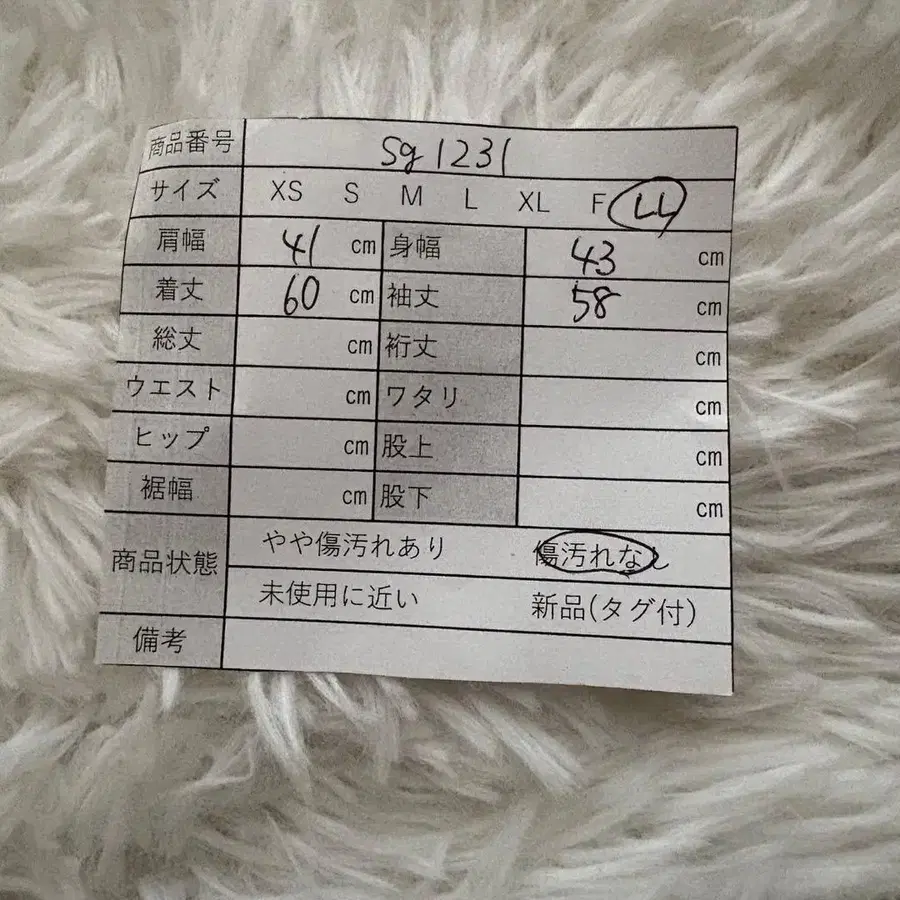 商品番号 Sg1231
サイズ XS S M L XL F LL
肩幅 41 cm 身幅 43 cm
着丈 60 cm 袖丈 58 cm
総丈 cm 裄丈 cm
ウエスト cm ワタリ cm
ヒップ cm 股上 cm
裾幅 cm 股下 cm
商品状態 やや傷汚れあり 傷汚れなし
未使用に近い 新品(タグ付)
備考